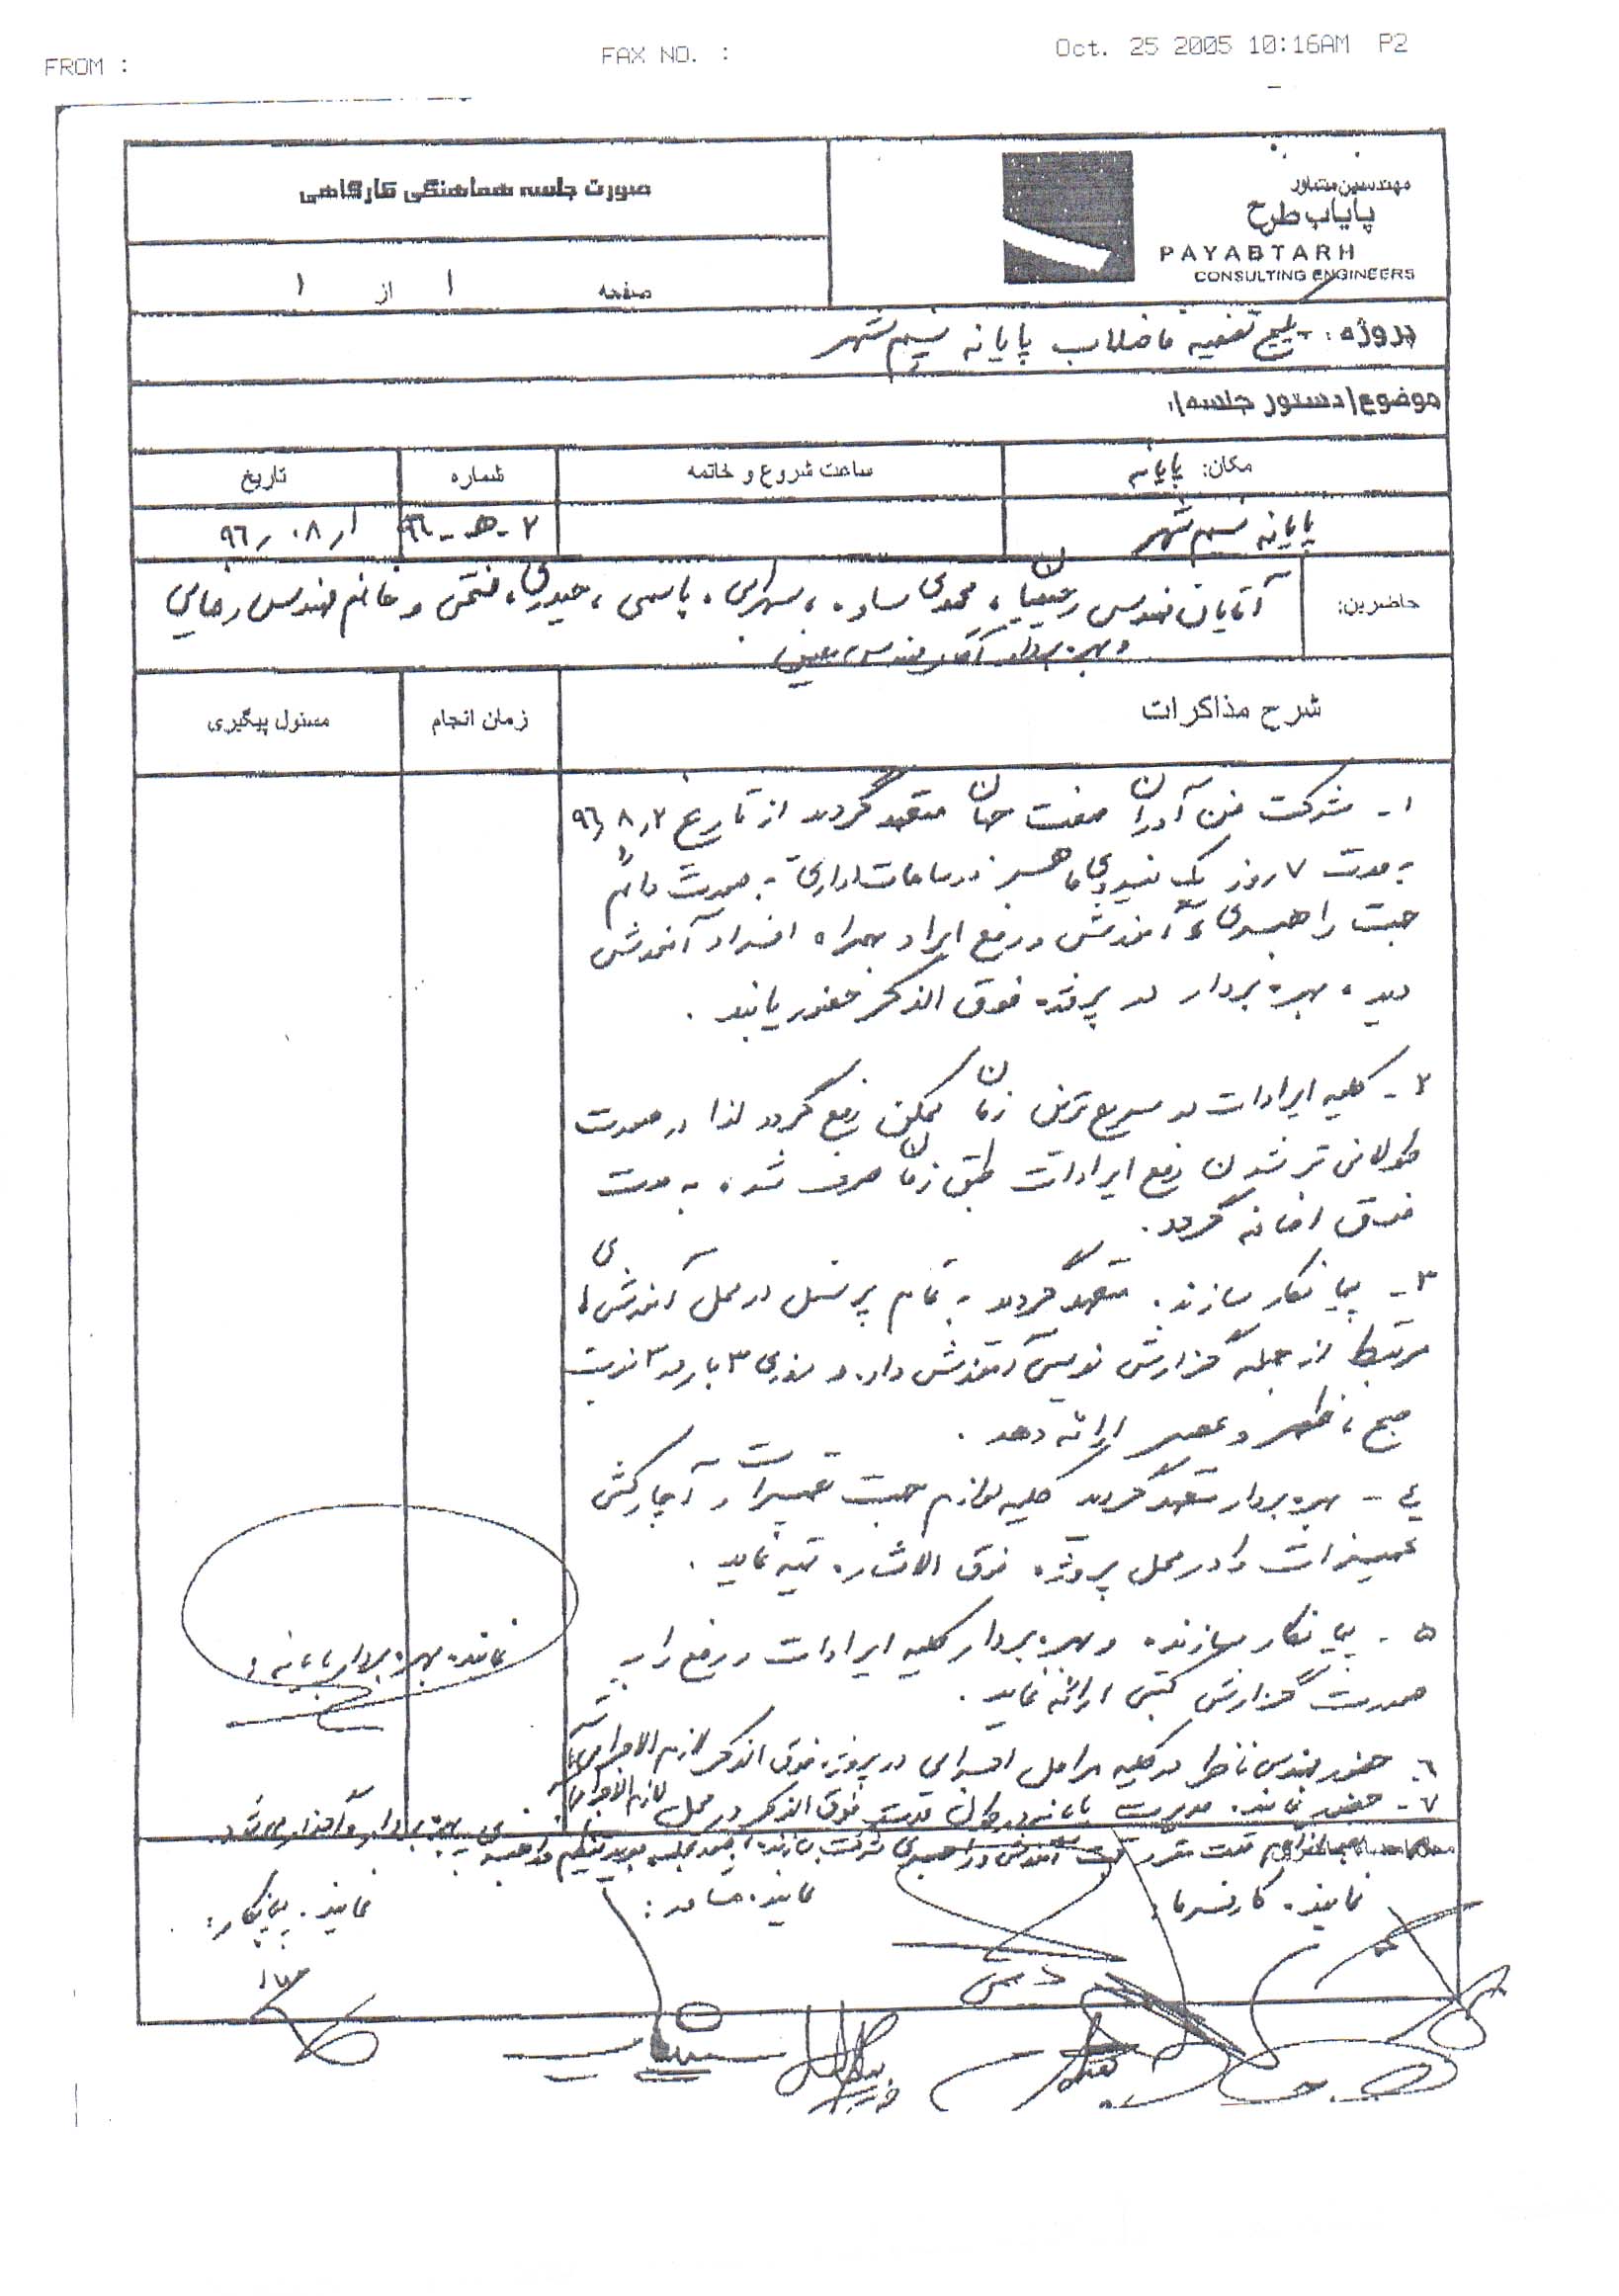 FROM :
FAX NO. :
Oct. 25 2005 10:16AM P2
مهندسین مشاور
پایاب طرح
PAYABTARH
CONSULTING ENGINEERS
صورت جلسه هماهنگی کارگاهی
صفحه ۱ از ۱
پروژه: پکیج تصفیه فاضلاب پایانه نسیم شهر
موضوع (دستور جلسه):
مکان: پایانه
ساعت شروع و خاتمه
شماره
تاریخ
پایانه نسیم شهر
۲-هـ-۹۶
۹۶,۰۸,۱
حاضرین:
آقایان مهندس رحیمیان، محمدی ساوه، سهرابی، یاسمی، حیدری، فتحی و خانم مهندس رضایی
و بهره بردار آقای مهندس
شرح مذاکرات
زمان انجام
مسئول پیگیری
۱- شرکت فن آوران صنعت جهان متعهد گردید از تاریخ ۹۶,۸,۲
به مدت ۷ روز یک نیروی ماهر در ساعات اداری به صورت دائم
جهت راهبری و آموزش و رفع ایراد بهمراه افراد آموزش
دیده بهره بردار در پروژه فوق الذکر حضور یابند.
۲- کلیه ایرادات در سریع ترین زمان ممکن رفع گردد لذا در صورت
طولانی تر شدن رفع ایرادات طبق زمان صرف شده به مدت
فوق اضافه گردد.
۳- پیمانکار سازنده متعهد گردید به تمام پرسنل در محل آموزش های
مرتبط از جمله گزارش نویسی آموزش داده و روزی ۳ بار در ۳ نوبت
صبح، ظهر و عصر ارائه دهد.
۴- بهره بردار متعهد گردید کلیه لوازم جهت تعمیرات و آچارکشی
تجهیزات را در محل پروژه فوق الاشاره تهیه نماید.
۵- پیمانکار سازنده و بهره بردار کلیه ایرادات و رفع را به
صورت گزارش کتبی ارائه نماید.
۶- حضور مهندس ناظر در کلیه مراحل اجرایی در پروژه فوق الذکر لازم الاجرا می باشد
۷- حضور نماینده مدیریت پایانه در طول مدت فوق الذکر در محل لازم الاجرا
نماینده بهره بردار پایانه:
نماینده کارفرما:
نماینده مشاور:
نماینده پیمانکار: